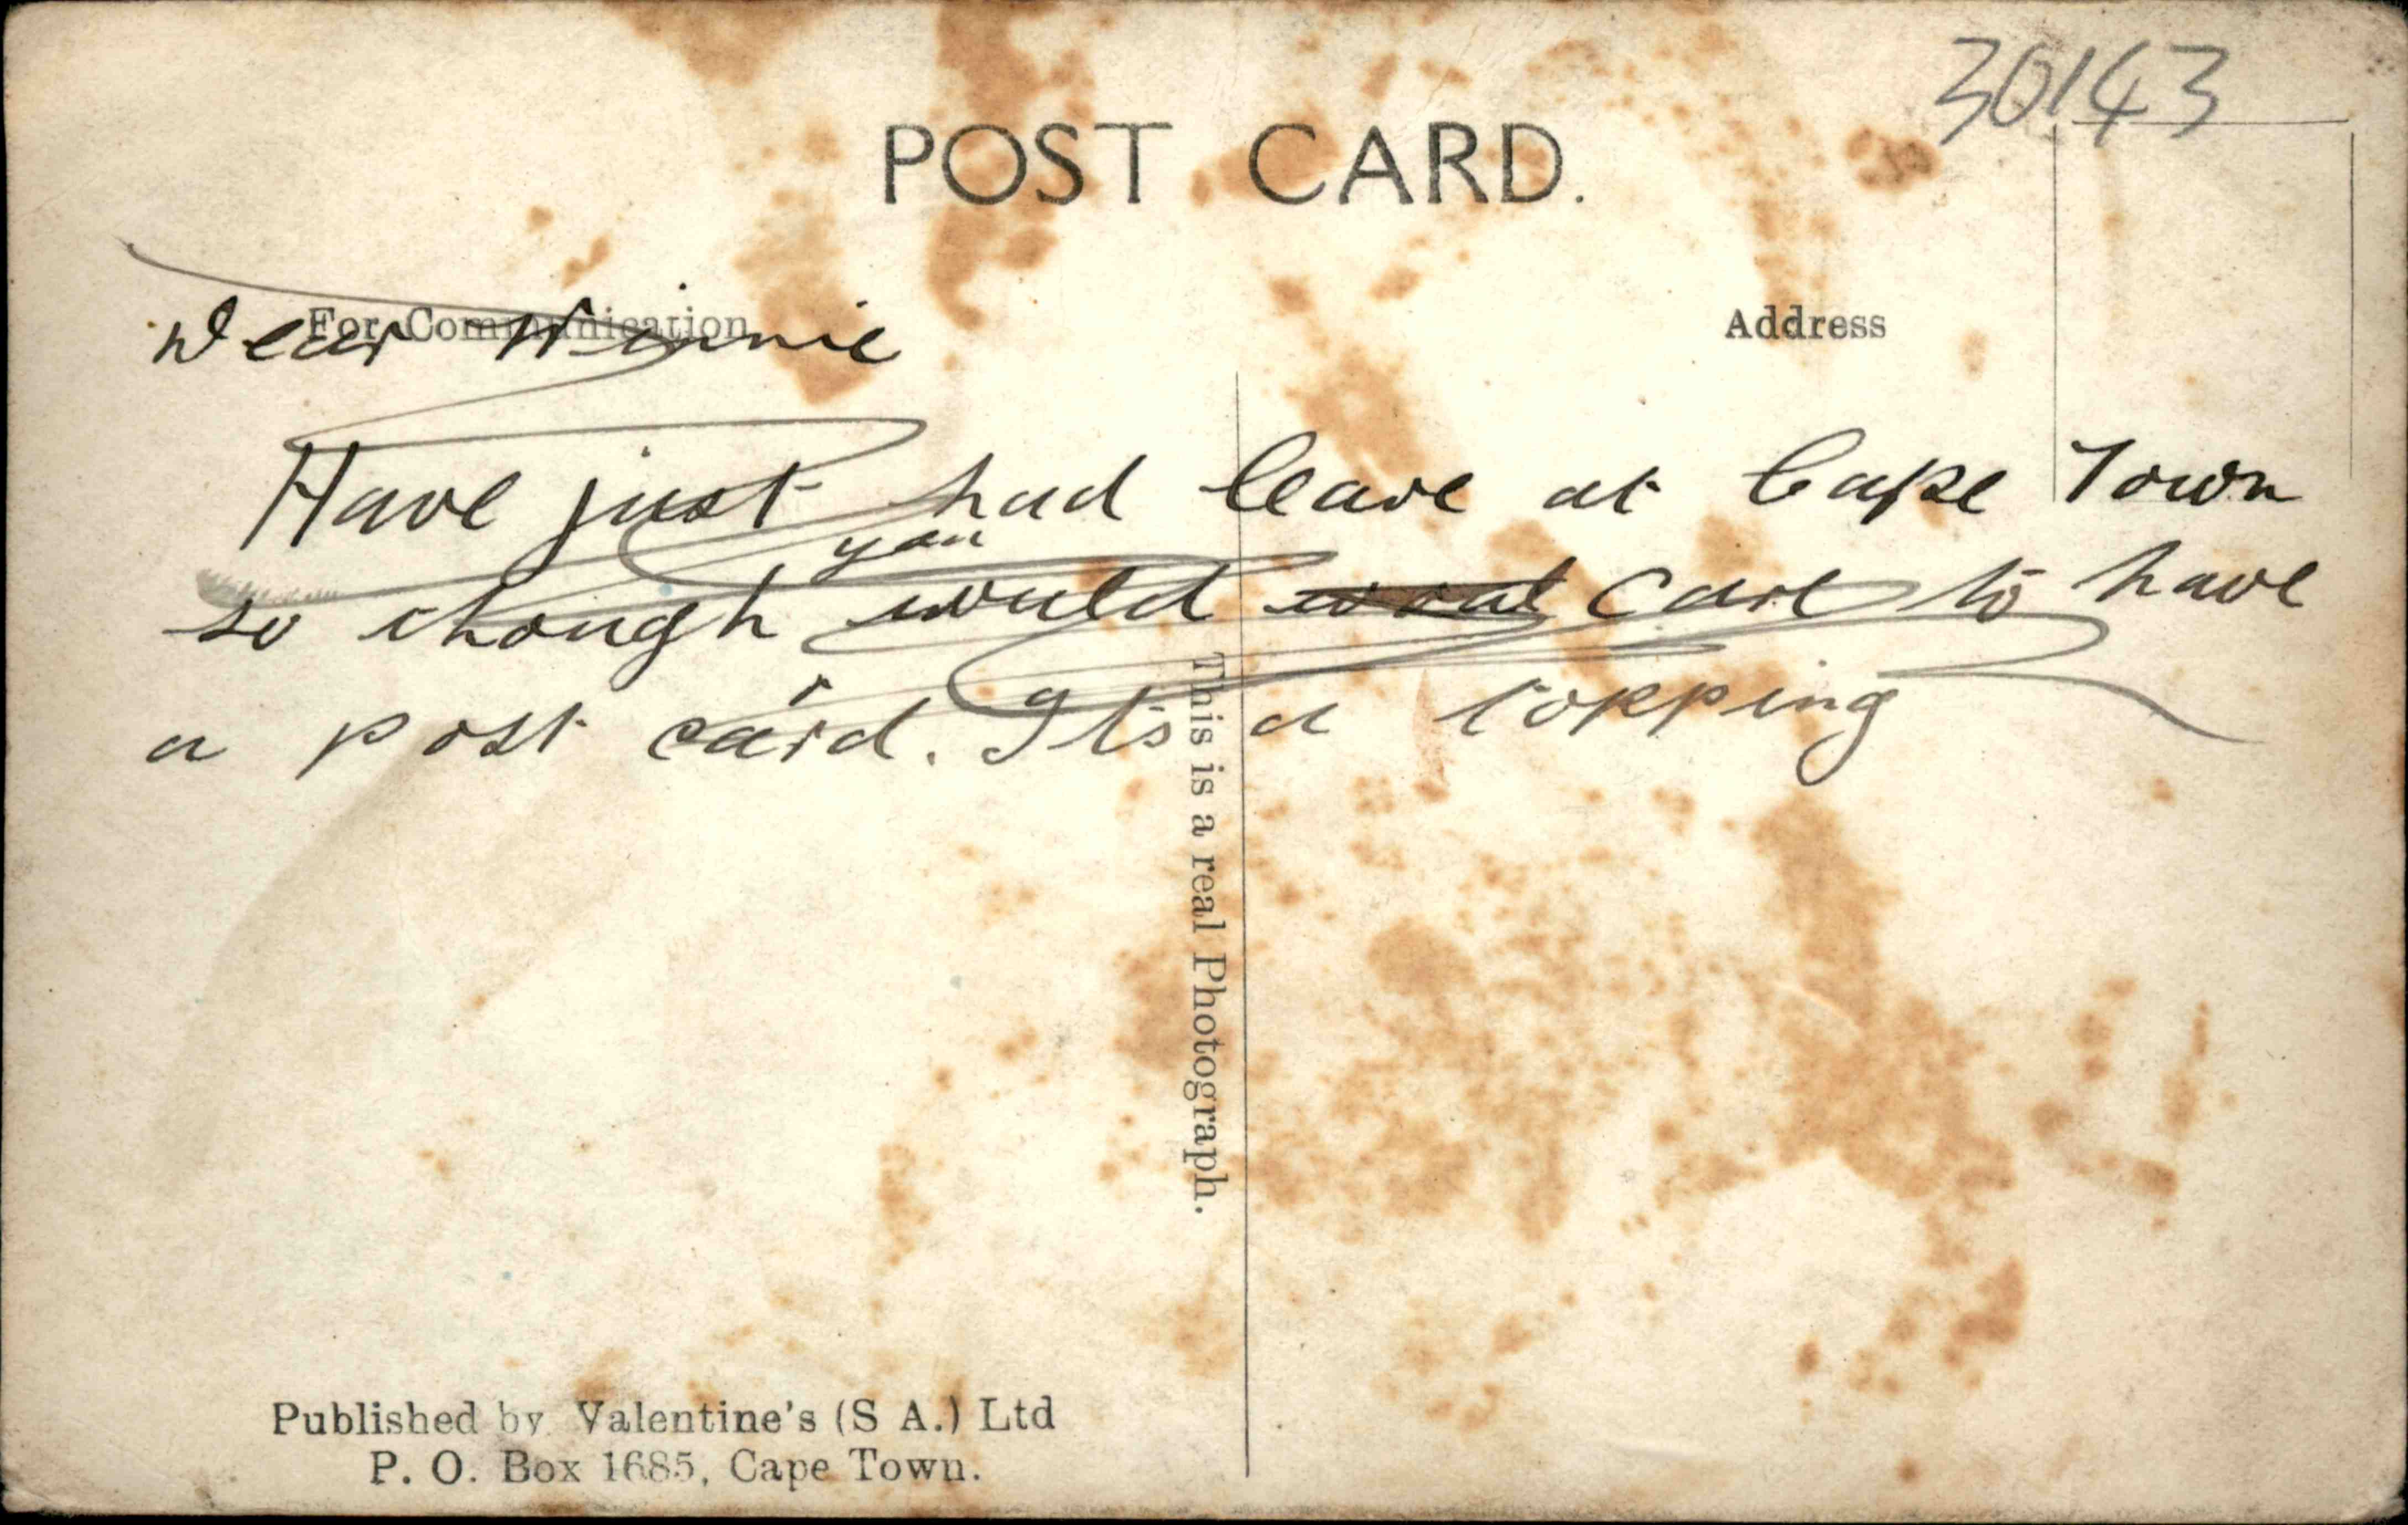 30143
POST CARD.
For Communication
Address
Dear Winnie
Have just had leave at Cape Town
you
so though would care to have
a post card. Its a topping
This is a real Photograph.
Published by Valentine's (S A.) Ltd
P. O. Box 1685, Cape Town.